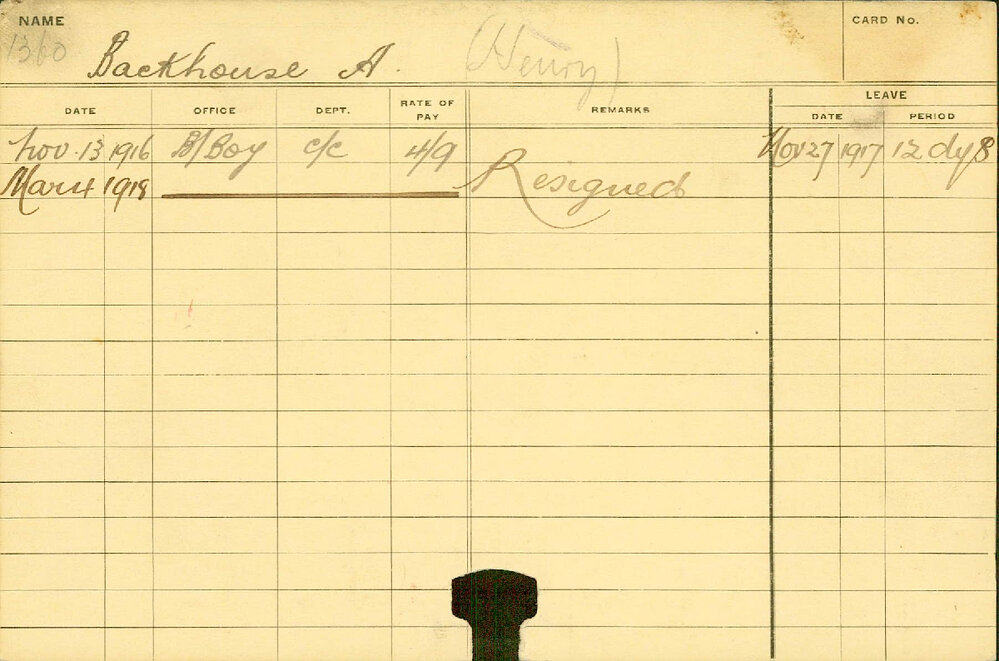 NAME
CARD No.
1360
Backhouse A. (Henry)
DATE OFFICE DEPT. RATE OF PAY REMARKS LEAVE
DATE PERIOD
Nov. 13 1916 B/Boy c/c 4/9 Nov 27 1917 12 dys
Mar 4 1918 Resigned